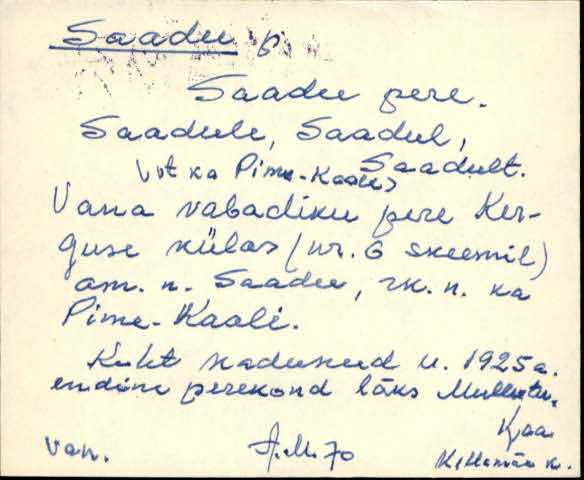 Saadu p
Saadu pere.
Saadule, Saadul,
Saadult.
(vt ka Pime-Kaali)
Vana vabadiku pere Ker-
guse külas (nr. 6 skeemil)
am. n. Saadu, rk. n. ka
Pime-Kaali.
Koht kadunud u. 1925 a.
endine perekond läks
Kaa.
van. A.M. 70